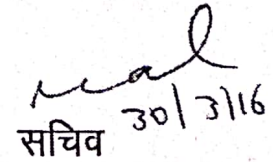 30/3/16
सचिव